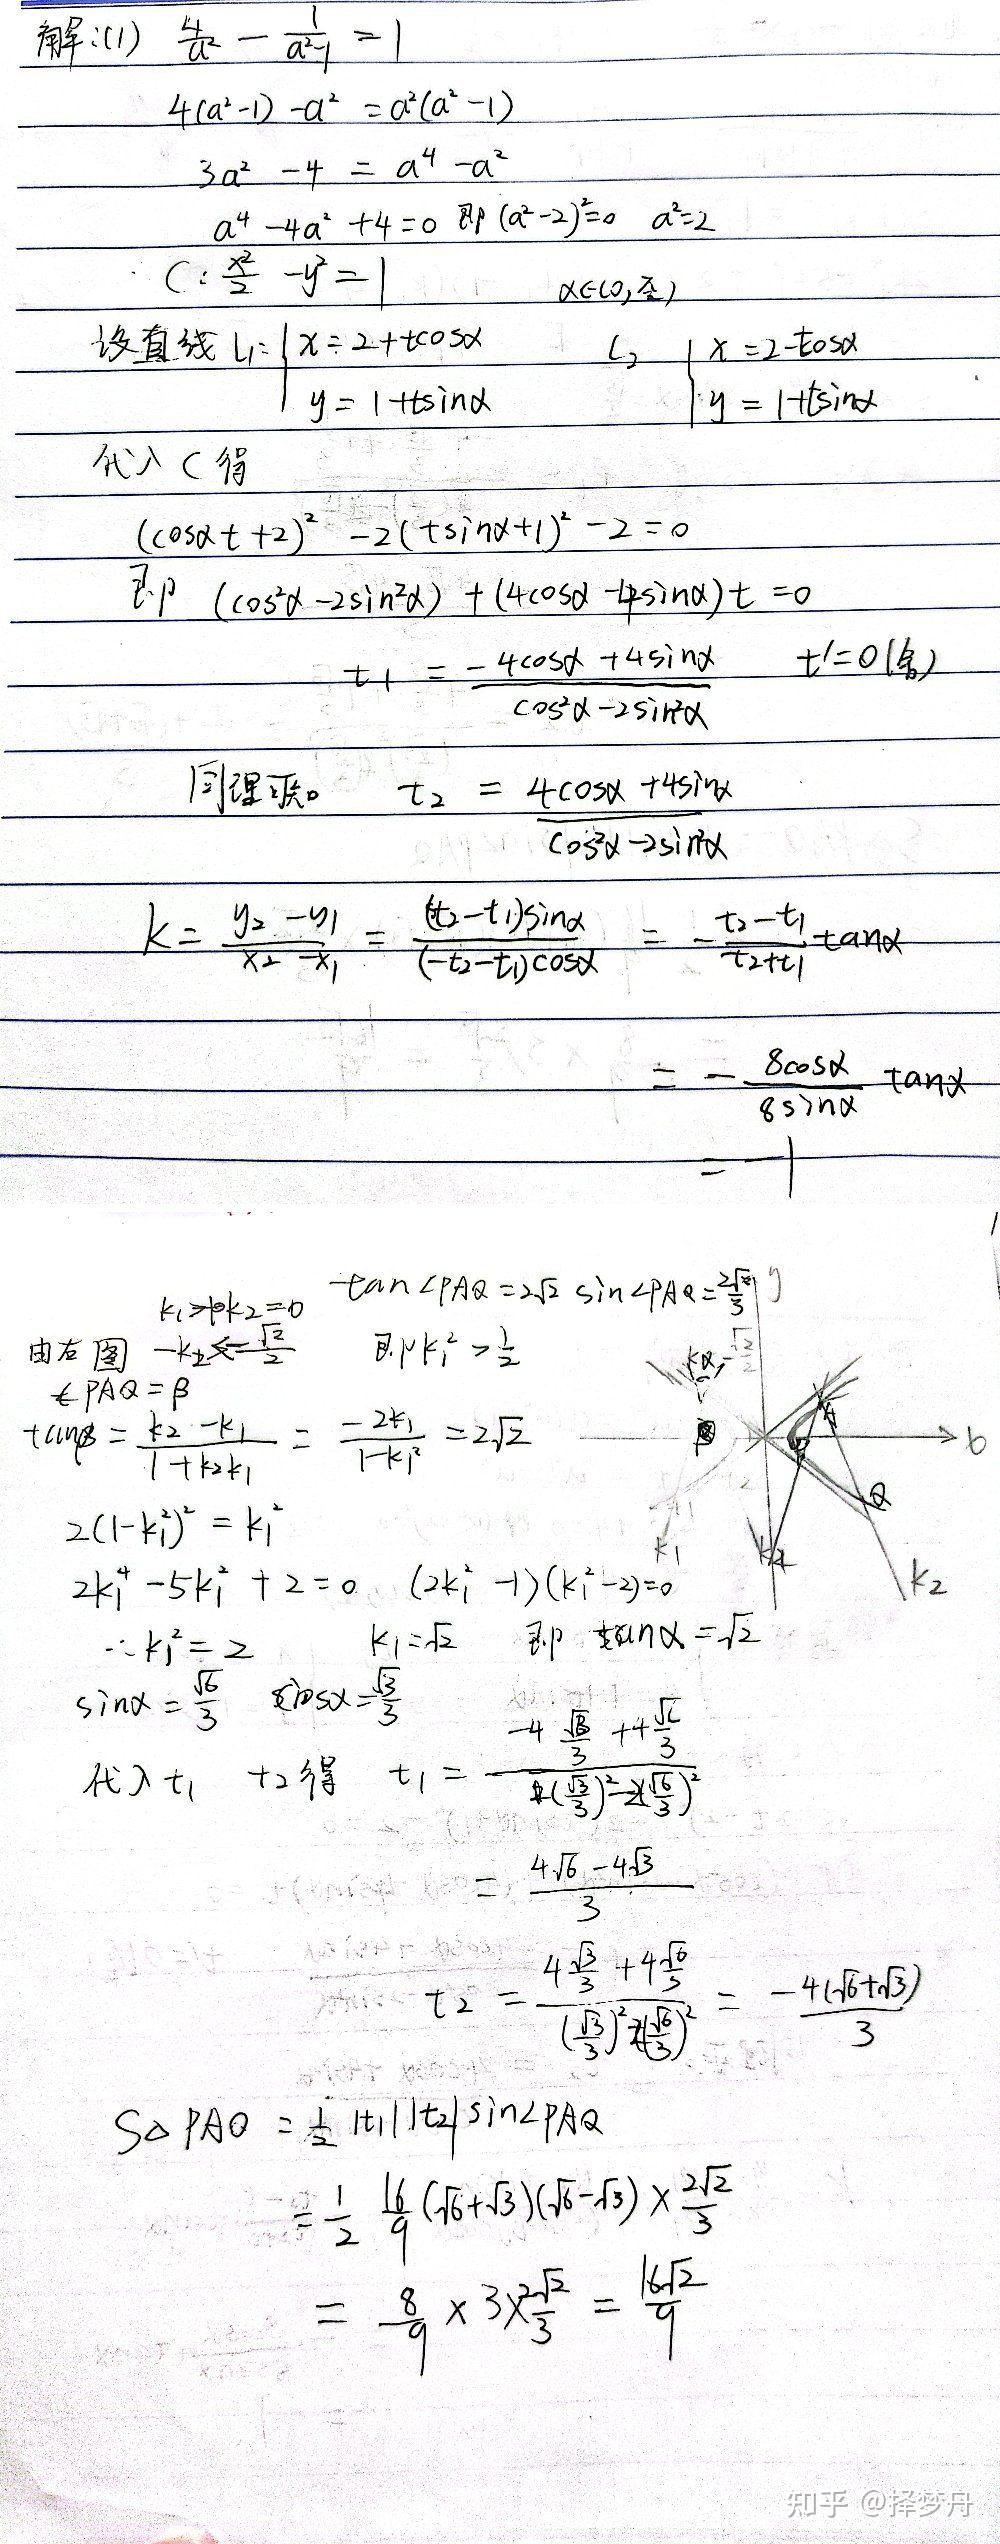 解:(1) 4/a² - 1/(a²-1) = 1
4(a²-1) - a² = a²(a²-1)
3a² - 4 = a⁴ - a²
a⁴ - 4a² + 4 = 0 即 (a²-2)²=0 a²=2
C: x²/2 - y² = 1
α∈(0, π/2)
设直线 l₁: { x = 2+tcosα y = 1+tsinα l₂ { x = 2-tcosα y = 1+tsinα
代入 C 得
(cosαt+2)² - 2(tsinα+1)² - 2 = 0
即 (cos²α-2sin²α) + (4cosα-4sinα)t = 0
t₁ = (-4cosα+4sinα)/(cos²α-2sin²α) t'=0(舍)
同理可知 t₂ = (4cosα+4sinα)/(cos²α-2sin²α)
k = (y₂-y₁)/(x₂-x₁) = (t₂-t₁)sinα/(-t₂-t₁)cosα = -(t₂-t₁)/(t₂+t₁) tanα
= - 8cosα/8sinα tanα
= -1
tan∠PAQ=2√2 sin∠PAQ=2√2/3 y
由右图 即k₁²>1/2
∠PAQ=β
tanβ = (k₂-k₁)/(1+k₂k₁) = -2k₁/(1-k₁²) = 2√2
2(1-k₁²)² = k₁²
2k₁⁴ - 5k₁² + 2 = 0 (2k₁²-1)(k₁²-2)=0
∴k₁² = 2 k₁=√2 即 tanα=√2
sinα = √6/3 cosα = √3/3
代入t₁ t₂得 t₁ = (-4 √3/3 + 4 √6/3)/((√3/3)²-2(√6/3)²)
= (4√6-4√3)/3
t₂ = (4 √3/3 + 4 √6/3)/((√3/3)²-2(√6/3)²) = -4(√6+√3)/3
S△PAQ = 1/2 |t₁||t₂|sin∠PAQ
= 1/2 16/9 (√6+√3)(√6-√3) × 2√2/3
= 8/9 × 3 × 2√2/3 = 16√2/9
A
P
Q
k₁
k₂
知乎 @择梦舟